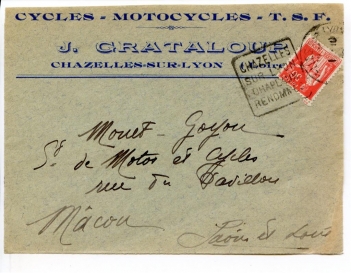 CYCLES - MOTOCYCLES - T. S. F.
J. GRATALOUP
CHAZELLES-SUR-LYON (Loire)
CHAZELLES
SUR LYON
CHAPELLERIE
Monet-Goyon
St de Motos et Cycles
rue du Pavillon
Mâcon
Saône et Loire